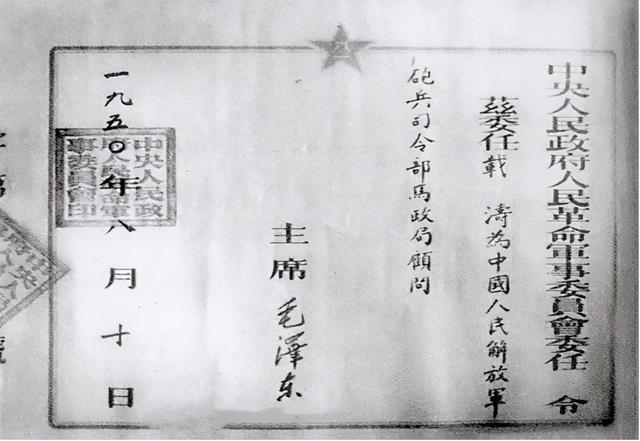 中央人民政府人民革命軍事委員會委任令
茲委任載濤為中國人民解放軍
砲兵司令部馬政局顧問
主席毛澤东
一九五〇年八月十日
中央人民政
府人民革命軍
事委員會印